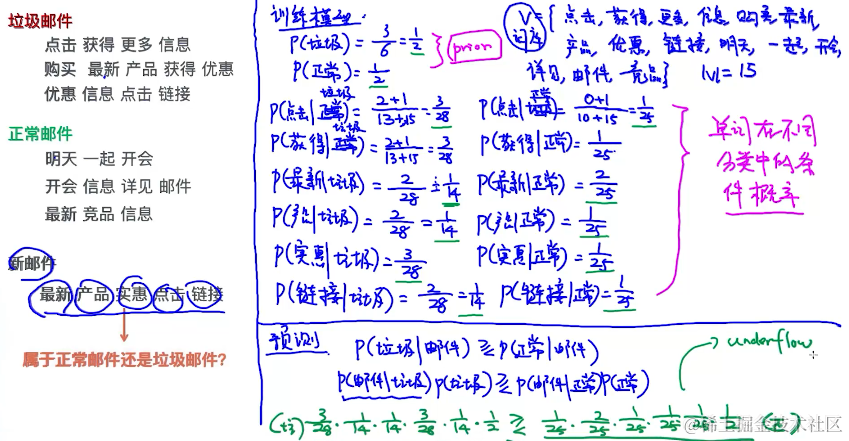 垃圾邮件
点击 获得 更多 信息
购买 最新 产品 获得 优惠
优惠 信息 点击 链接
正常邮件
明天 一起 开会
开会 信息 详见 邮件
最新 竞品 信息
新邮件
最新 产品 实惠 点击 链接
属于正常邮件还是垃圾邮件?
训练模型:
P(垃圾) = 3/6 = 1/2
P(正常) = 1/2
prior
V = { 点击, 获得, 更多, 信息, 购买, 最新,
词库
产品, 优惠, 链接, 明天, 一起, 开会,
详见, 邮件, 竞品 } |V| = 15
P(点击|垃圾) = 2+1/13+15 = 3/28 P(点击|正常) = 0+1/10+15 = 1/25
P(获得|垃圾) = 2+1/13+15 = 3/28 P(获得|正常) = 1/25
P(最新|垃圾) = 2/28 = 1/14 P(最新|正常) = 2/25
P(产品|垃圾) = 2/28 = 1/14 P(产品|正常) = 1/25
P(实惠|垃圾) = 3/28 P(实惠|正常) = 1/25
P(链接|垃圾) = 2/28 = 1/14 P(链接|正常) = 1/25
单词在不同
分类中的条
件概率
预测 P(垃圾|邮件) ≥ P(正常|邮件)
→ underflow
P(邮件|垃圾) P(垃圾) ≥ P(邮件|正常) P(正常)
3/28 · 1/14 · 1/14 · 3/28 · 1/14 · 1/2 ≥ 1/25 · 2/25 · 1/25 · 1/25 · 1/25 · 1/2
@稀土掘金技术社区